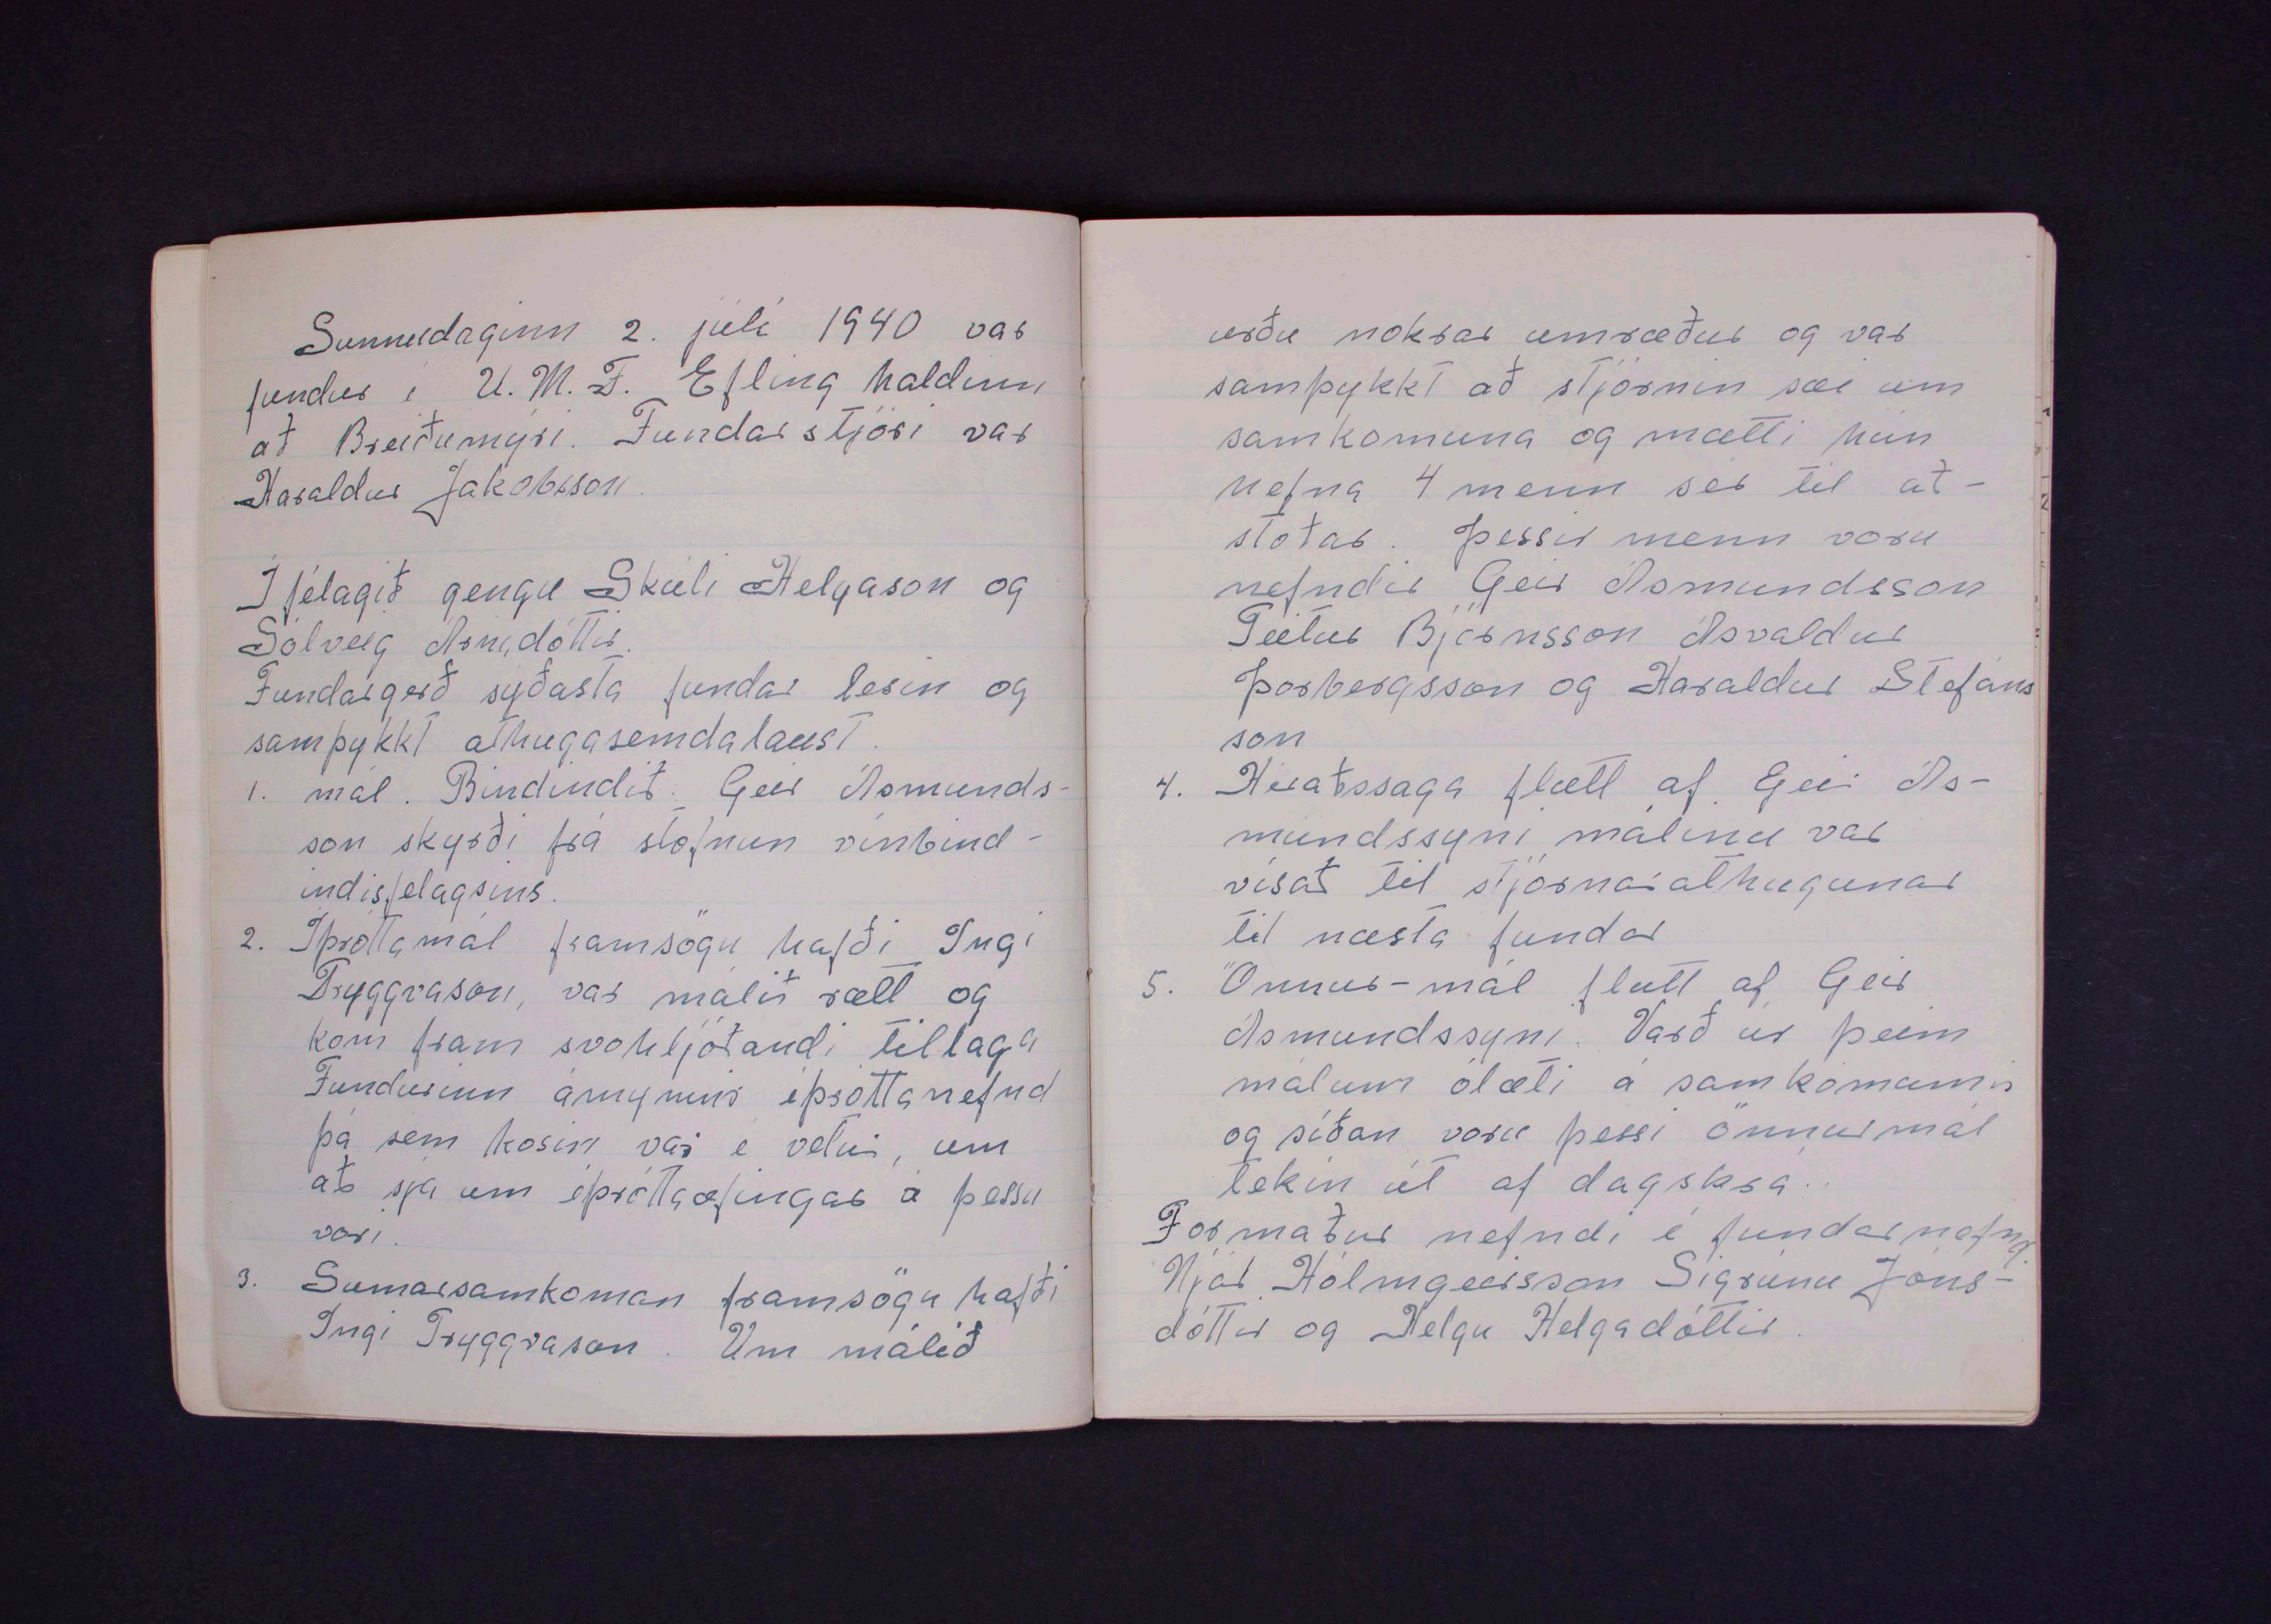 Sunnudaginn 2. júlí 1940 var
fundur í U.M.F. Efling haldinn
að Breiðumýri. Fundarstjóri var
Haraldur Jakobsson.
Í félagið gengu Skúli Helgason og
Sólveig Arn,dóttir.
Fundargerð syðasta fundar lesin og
samþykkt athugasemdalaust.
1. mál. Bindindið. Geir Ásmunds-
son skyrði frá stofnun vínbind-
indisfelagsins.
2. Íþróttamál framsögu hafði Ingi
Tryggvason, var málið rætt og
kom fram svohljóðandi tillaga
Fundurinn ámynnir íþróttanefnd
þá sem kosin var í vetur, um
að sjá um íþróttaæfingar á þessu
vori.
3. Sumarsamkoman framsögu hafði
Ingi Tryggvason. Um málið
urðu nokrar umræður og var
samþykkt að stjórnin sæi um
samkomuna og mætti hún
nefna 4 menn sér til að-
stoðar. Þessir menn voru
nefndir Geir Ásmundsson
Teitur Björnsson Ásvaldur
Þorbergsson og Haraldur Stefáns
son
4. Héraðssaga flutt af Geir Ás-
mundssyni málinu var
vísað til stjórnarathugunar
til næsta fundar
5. Önnur-mál flutt af Geir
Ásmundssyni. Varð úr þeim
málum ólæti á samkomumis
og síðan voru þessi önnurmál
tekin út af dagskrá..
Formaður nefndi í fundarnefnd
Njál Hólmgeirsson Sigrúnu Jóns-
dóttir og Helgu Helgadóttir.